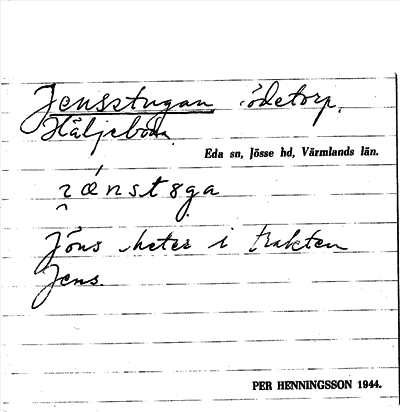 Jensstugan, ödetorp,
Häljeboda.
Eda sn, Jösse hd, Värmlands län.
Jöns heter i trakten
Jens.
PER HENNINGSSON 1944.